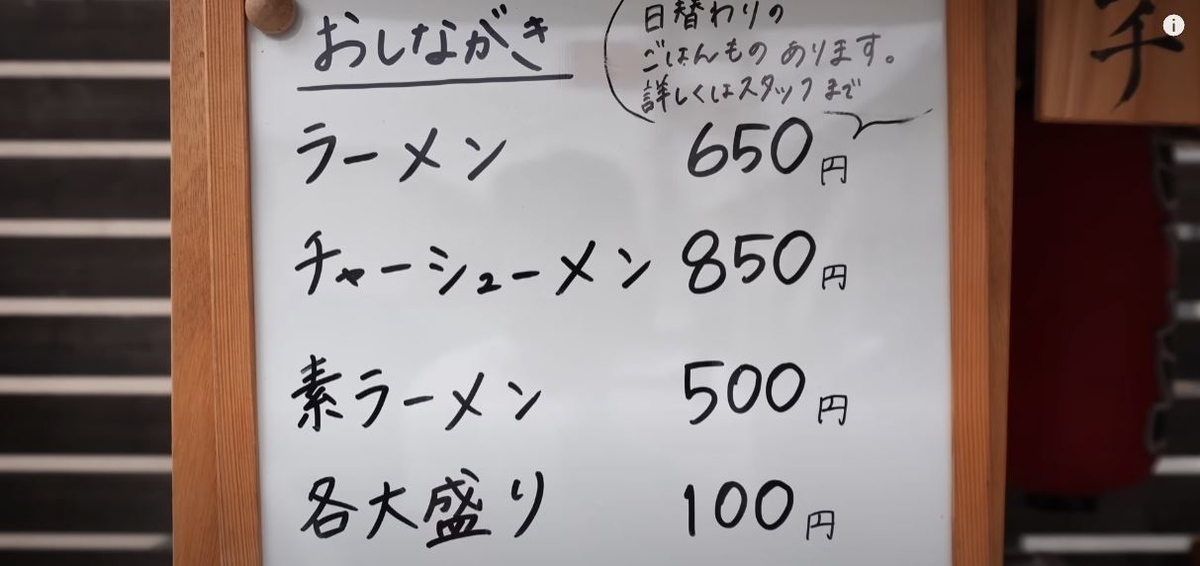 おしながき
日替わりの
ごはんもの あります。
詳しくはスタッフまで
ラーメン 650円
チャーシューメン 850円
素ラーメン 500円
各大盛り 100円